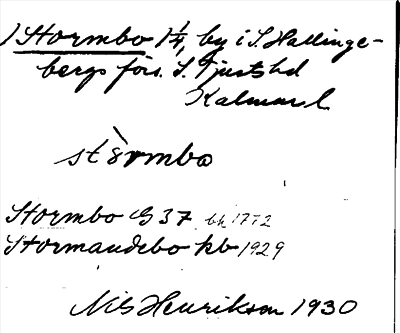 1 Stormbo 1/4, by i S. Hallinge-
bergs förs. S. Tjusts hd
Kalmar l
stòrmbo
Stormbo GS 37 bk 1772
Stormandebo kb 1929
Nils Henrikson 1930